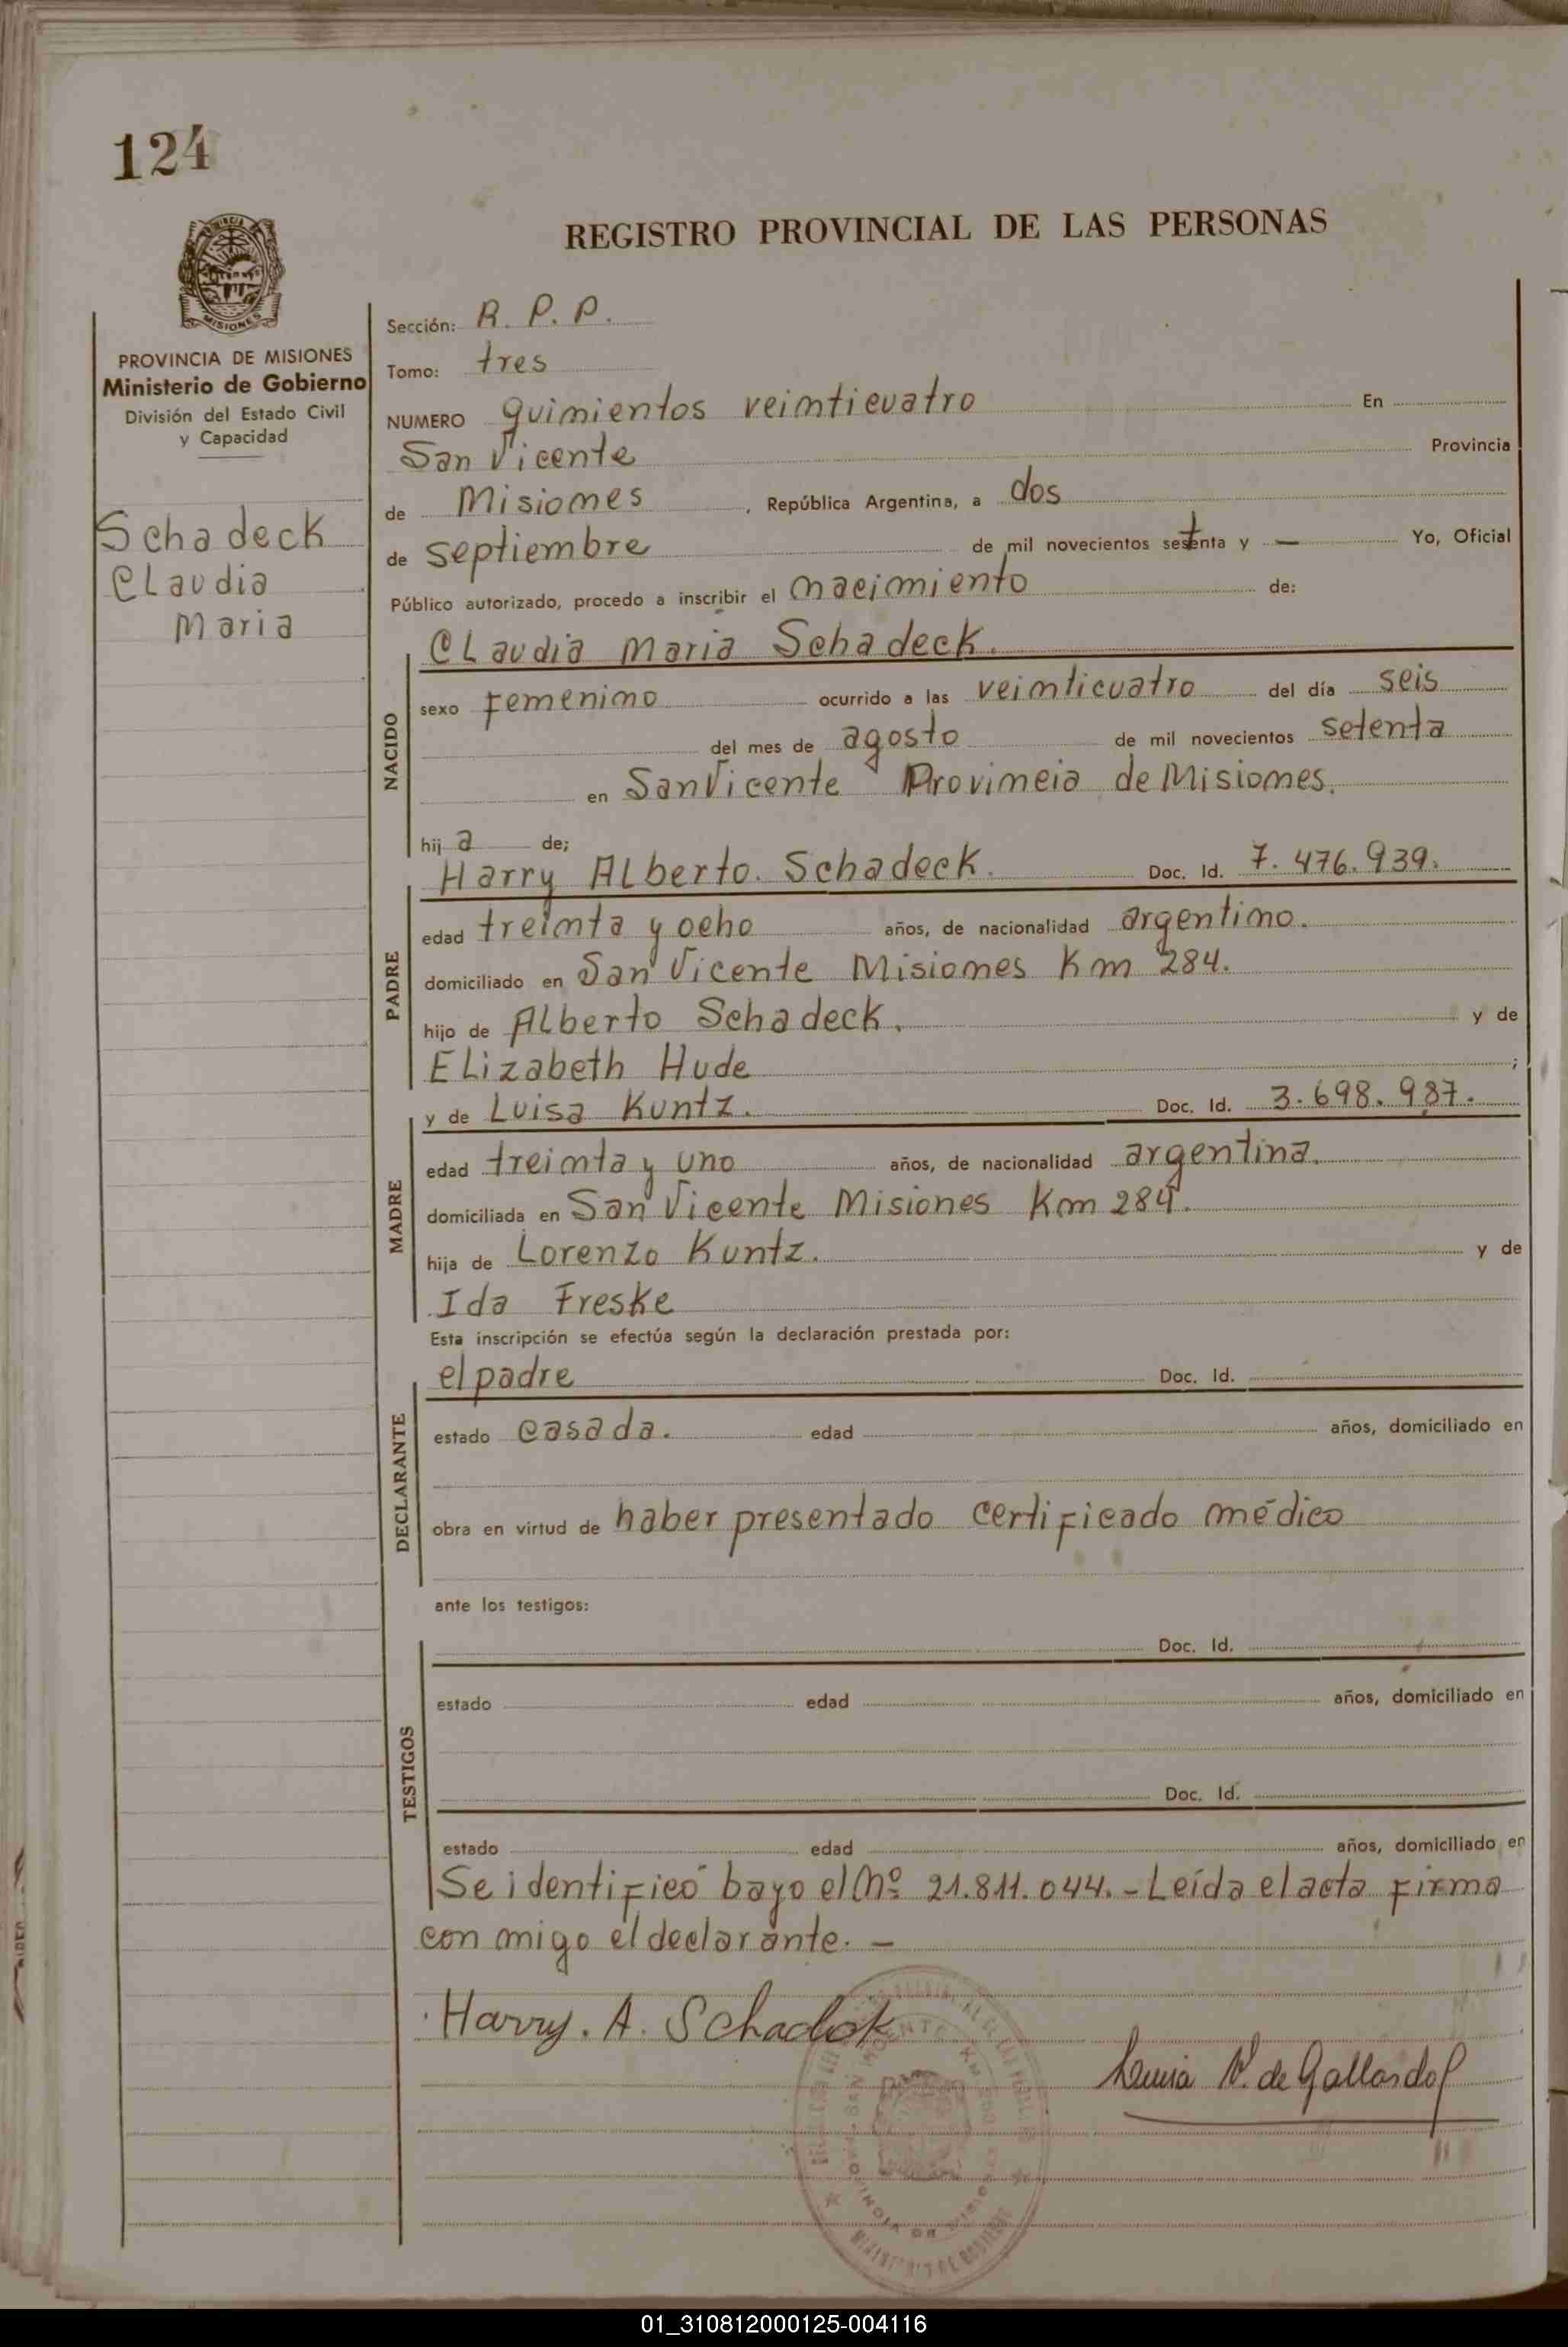 124
REGISTRO PROVINCIAL DE LAS PERSONAS
MISIONES
PROVINCIA DE MISIONES
Ministerio de Gobierno
División del Estado Civil
y Capacidad
Schadeck
Claudia
Maria
Sección: R. P. P.
Tomo: tres
NUMERO quimientos veimticuatro En
San Vicente Provincia
de Misiomes, República Argentina, a dos
de septiembre de mil novecientos setenta y — Yo, Oficial
Público autorizado, procedo a inscribir el nacimiento de:
Claudia Maria Schadeck.
NACIDO
sexo Femenimo ocurrido a las veimticuatro del día seis
del mes de agosto de mil novecientos setenta
en San Vicente Provimcia de Misiomes.
hija de;
Harry Alberto. Schadeck. Doc. Id. 7. 476. 939.
PADRE
edad treimta y ocho años, de nacionalidad argentimo.
domiciliado en San Vicente Misiomes Km 284.
hijo de Alberto Schadeck. y de
Elizabeth Hude ;
y de Luisa Kuntz. Doc. Id. 3. 698. 987.
MADRE
edad treimta y uno años, de nacionalidad argentina.
domiciliada en San Vicente Misiones Km 284.
hija de Lorenzo Kuntz. y de
Ida Freske
Esta inscripción se efectúa según la declaración prestada por:
el padre Doc. Id.
DECLARANTE
estado casada. edad años, domiciliado en
obra en virtud de haber presentado certificado médico
ante los testigos:
Doc. Id.
TESTIGOS
estado edad años, domiciliado en
Doc. Id.
estado edad años, domiciliado en
Se identificó bayo el Nº 21.811.044. - Leída el acta firma
con migo el declarante. —
Harry. A. Schadek
de Gallardo
01_310812000125-004116